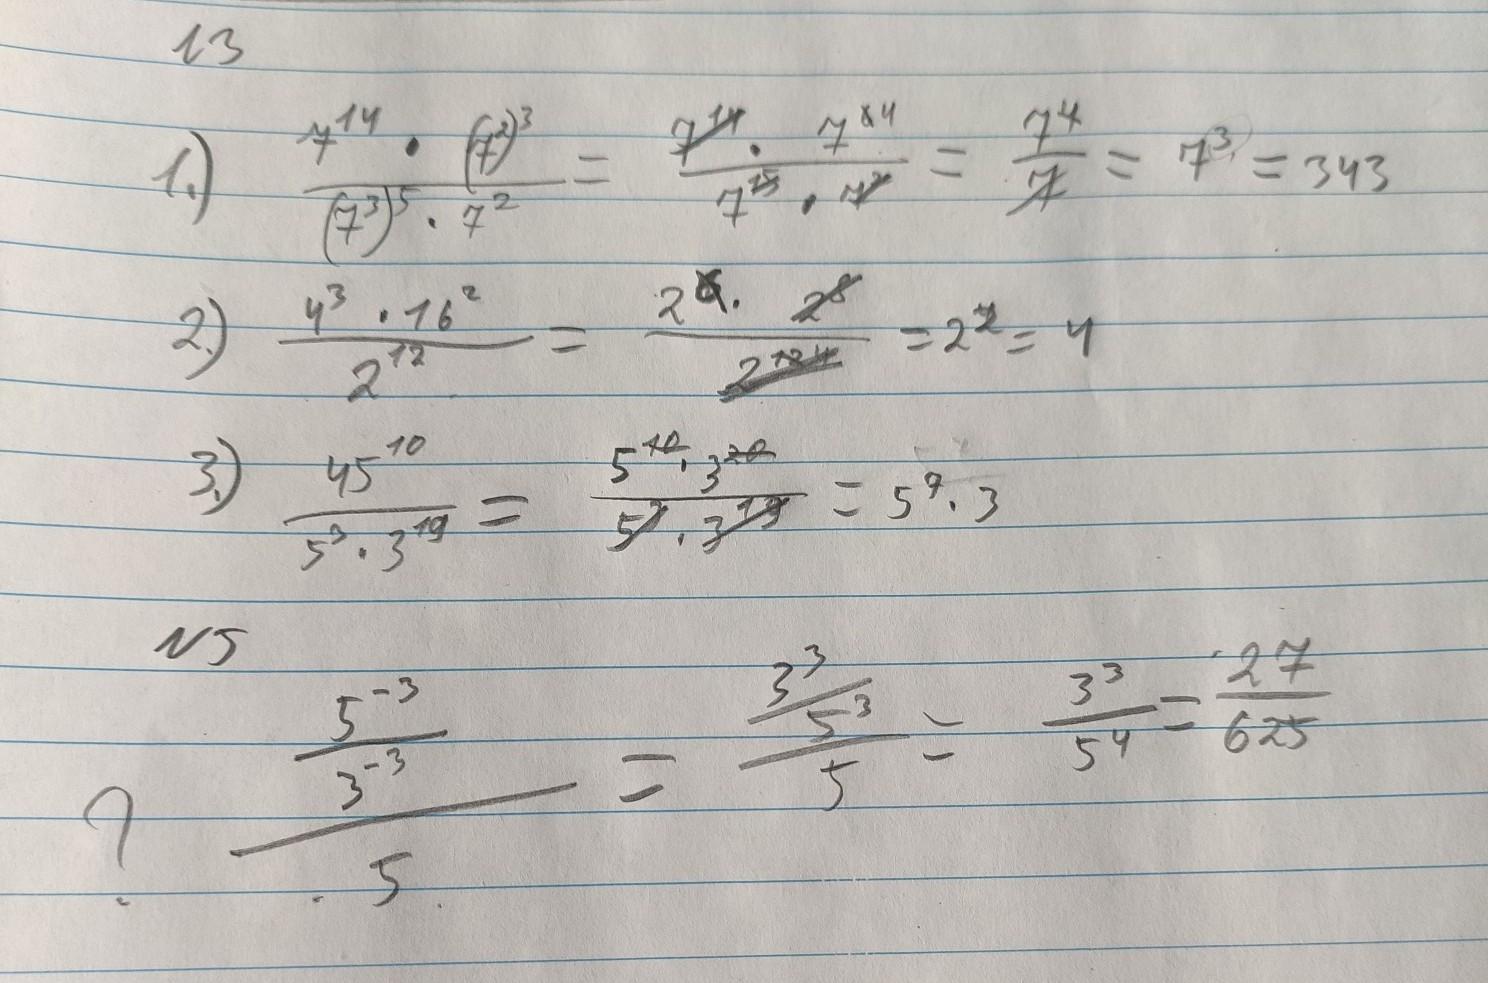 N3
1.) 7^14 · (7^2)^3 / (7^3)^5 · 7^2 = 7^14 · 7^64 / 7^15 · 7^2 = 7^4 / 7 = 7^3 = 343
2.) 4^3 · 16^2 / 2^12 = 2^6 · 2^8 / 2^12 4 = 2^2 = 4
3.) 45^10 / 5^3 · 3^19 = 5^10 · 3^20 / 5^3 · 3^19 = 5^7 · 3
N5
? 5^-3 / 3^-3 / 5 = 3^3 / 5^3 / 5 = 3^3 / 5^4 = 27 / 625